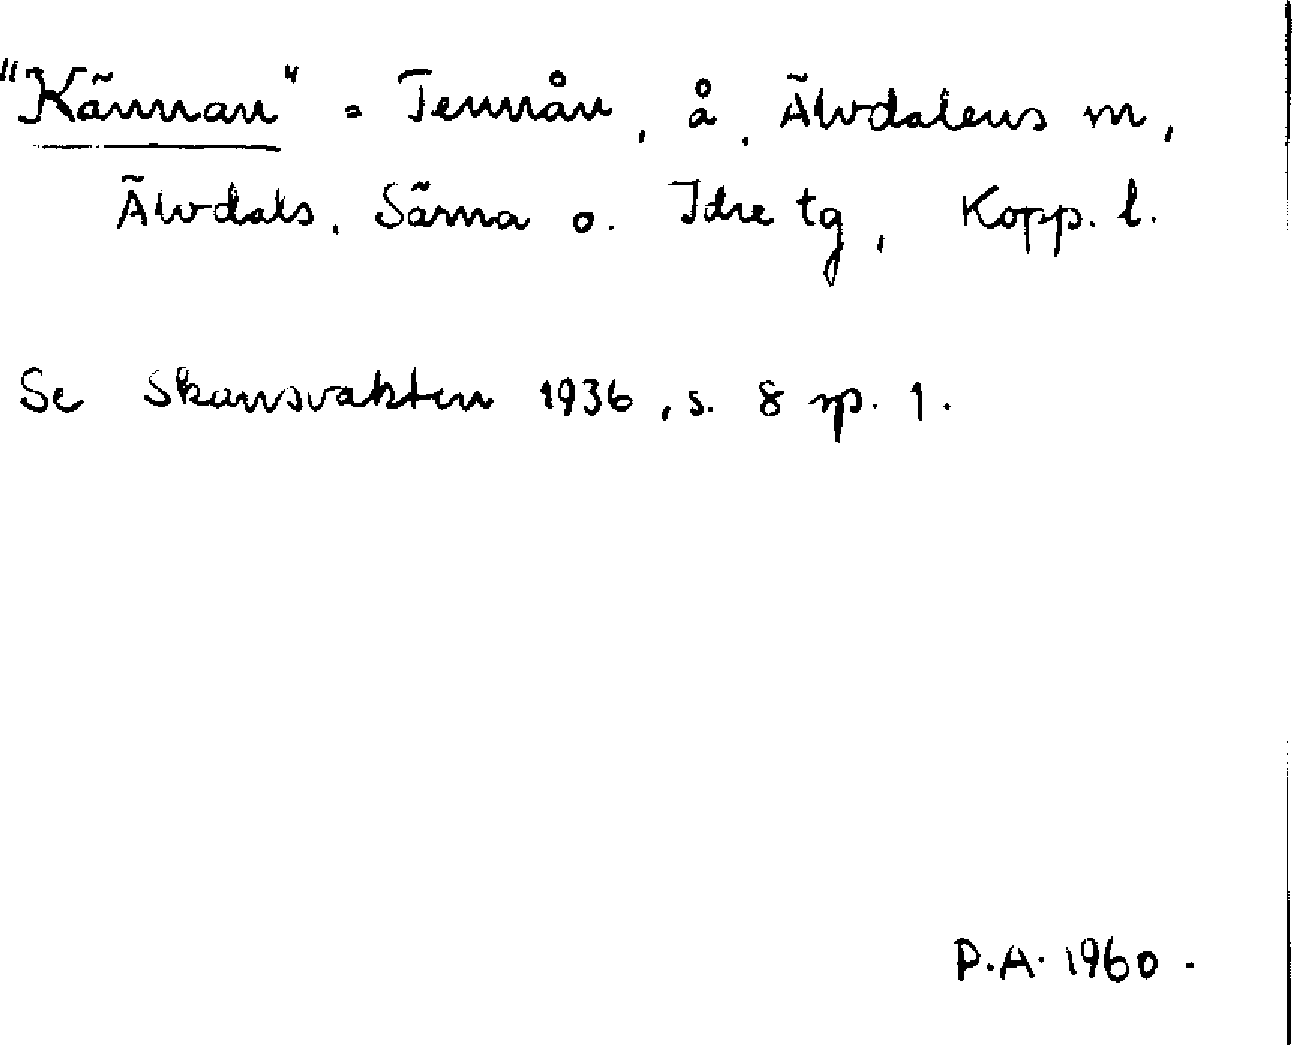 "Kännan" = Tennån, å, Älvdalens m,
Älvdals, Särna o. Idre tg, Kopp. l.
Se Skansvakten 1936, s. 8 sp. 1.
P.A. 1960.